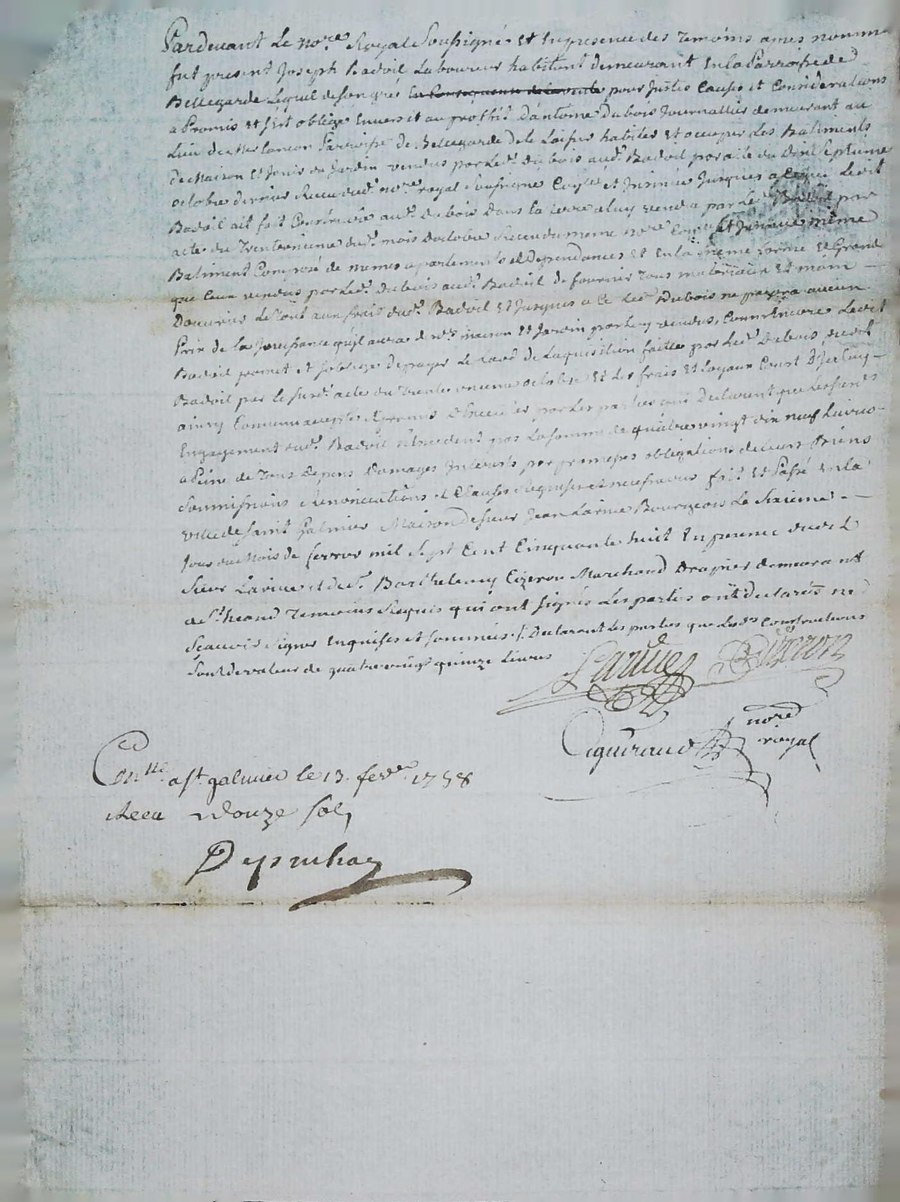 Pardevant Le no.re Royal Soussigné et En presence des Temoins apres nommes
fut present Joseph Badoil Laboureur habitant demeurant En la Parroisse de
Bellegarde Lequel de son gres pour Justes Causes et Considerations
a Promis et s'est obligé Envers et au proffit d'antoine dubois Journallier demeurant au
Lieu de Parroisse de Bellegarde de le Laisser habiter Et occuper Les Batiments
de Maison Et Jardin vendus par Led. dubois aud. Badoil par acte du dix Septieme
octobre dernier Receu dud. no.re royal Soussigné et Jusques a ce que Ledit
Badoil ait fait Construire aud. dubois dans la terre a luy vendu par Led. Badoil par
acte du Trente unieme dud. mois doctobre Receu du meme no.re Et Insinué même
Batiment Composé de memes apartements et dependances Et En la meme forme Et Grand
que Ceux vendus par Led. dubois aud. Badoil de fournir Tous materiaux Et main
Douvries Le Tout aux frais dud. Badoil Et Jusques a Ce Led. Dubois ne payera aucun
Prix de la Jouissance qu'il aura de maison Et Jardin par Luy vendus, Ledit
Badoil promet et s'oblige de payer Le de Laquisition faitte par Led. dubois, dudit
Badoil par le susd. acte du Trente unieme octobre Et Les frais Et Loyaux Cout
ainsy Convenu accepté par Les parties qui Declarent que
Engagement dud. Badoil n'Excedent pas La somme de quatre vingt dix neuf Livres
a Peine de Tous Depens Domages Interets, par obligations de Leurs Biens
Soumissions Renonciations et Clauses Requises et necessaires fait Et Passé En La
ville de Saint Galmier Maison de sieur Jean Larue Bourgeois Le Sixieme
Jour du Mois de fevrier mil Sept Cent Cinquante huit En presence dudit
Sieur Larue et de S.r Barthelemy Cizeron Marchand Drapier demeurant
aud. St. Temoins Requis qui ont signés Les parties ont declarés ne
Sçavoir signer Enquises et sommées. Declarant Les parties que Lesd. Constructions
Sont de valeur de quatre vingt quinze Livres
Larue Cizeron
no.re
royal
Con.lle a St galmier le 13. fev.er 1758
Receu Douze Sols